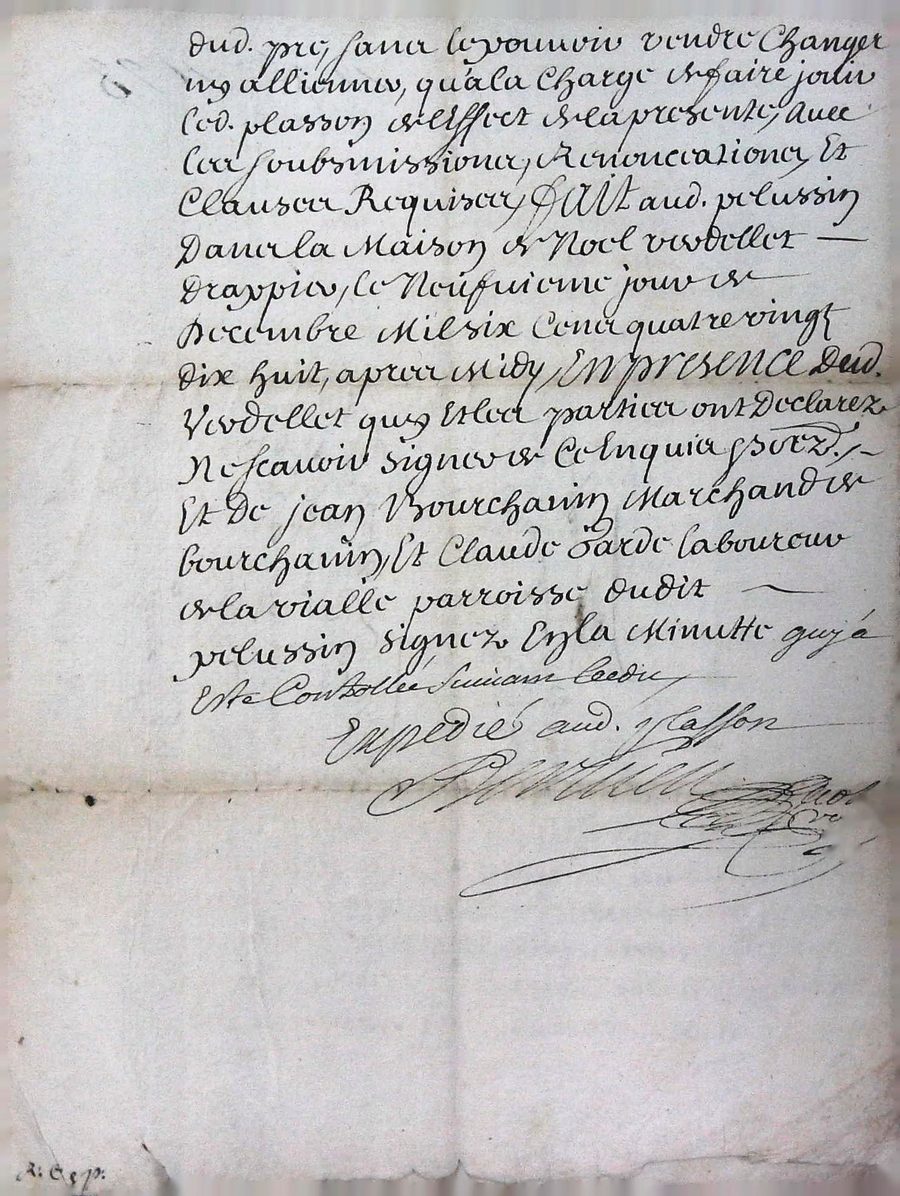 dud. pré, sans le pouvoir vendre Changer
ny alliener, qu'a la Charge de faire jouir
Led. plasson de l'Effect de la presente, avec
les soubsmissions, Renonciations, Et
Clauses Requises, fait aud. pelussin
Dans la Maison de Noel verdellet
Drappier, le Neufvieme jour de
Decembre Mil six Cens quatre vingt
dix huit, apres Midy, En presence Dud.
Verdellet quy Et les parties ont Declarez
Ne scavoir signer de Ce Enquis
Et De jean Bourchanin Marchand de
bourchanin, Et Claude Garde laboureur
de la vialle parroisse dudit
pelussin signez En la Minutte quy a
Esté Controllée Suivant Ledit
Expedié aud. plasson